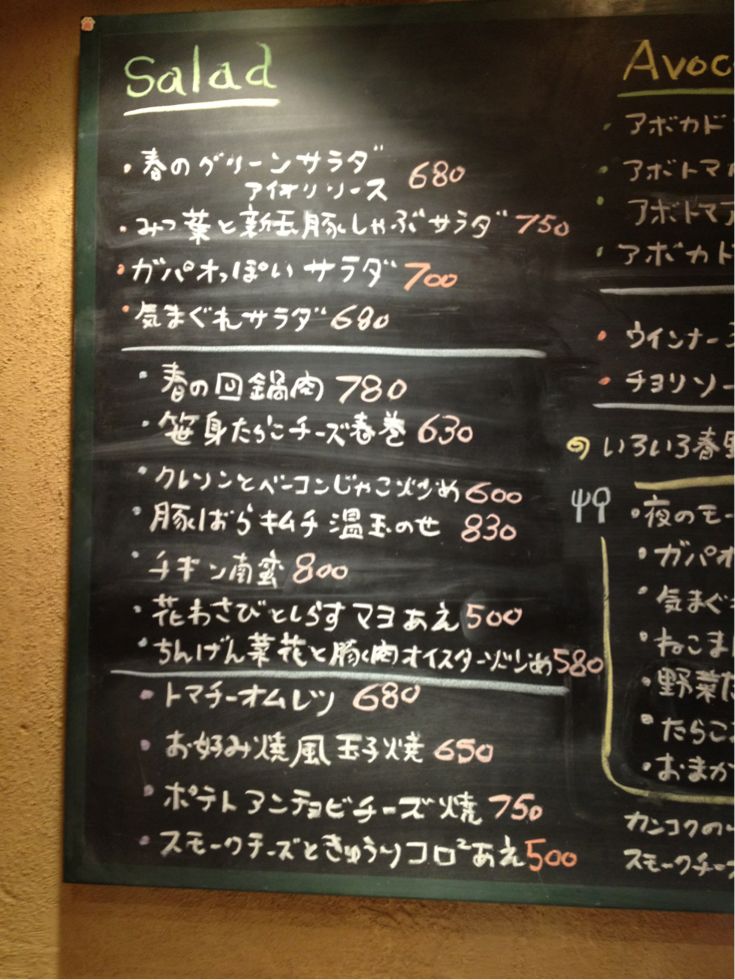 Salad
・春のグリーンサラダ
アイオリソース 680
・みつ葉と新玉豚しゃぶサラダ 750
・ガパオっぽいサラダ 700
・気まぐれサラダ 680
・春の回鍋肉 780
・笹身たらこチーズ春巻 630
・クレソンとベーコンじゃこ炒め 600
・豚ばらキムチ温玉のせ 830
・チキン南蛮 800
・花わさびとしらすマヨあえ 500
・ちんげん菜花と豚肉オイスター炒め 580
・トマチーオムレツ 680
・お好み焼風玉子焼 650
・ポテトアンチョビチーズ焼 750
・スモークチーズときゅうりコロ²あえ 500
Avoc
・アボカド
・アボトマ
・アボトマ
・アボカド
・ウインナー
・チョリソー
いろいろ春野
・夜のモー
・ガパオ
・気まぐ
・ねこま
・野菜た
・たらこ
・おまか
カンコクの
スモークチーズ